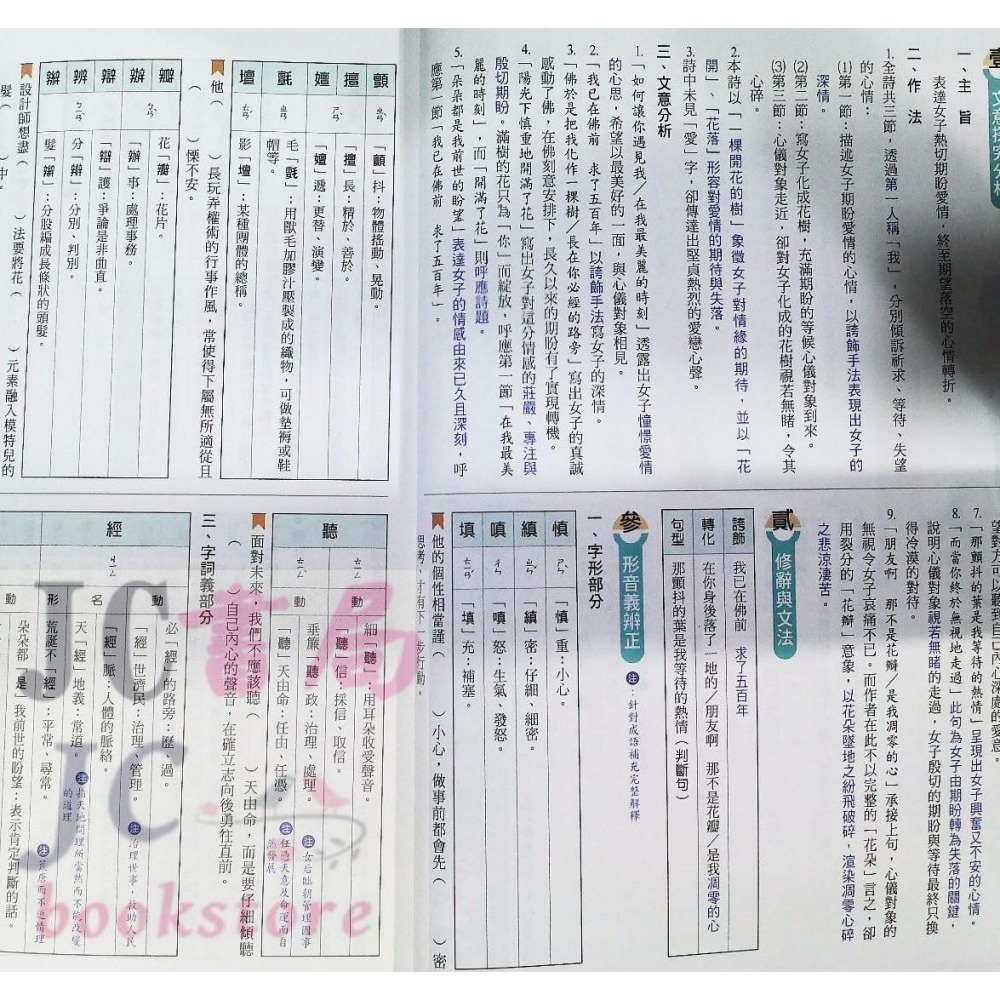 壹 文意探究分析
一、主 旨
表達女子熱切期盼愛情，終至期望落空的心情轉折。
二、作 法
1.全詩共三節，透過第一人稱「我」，分別傾訴祈求、等待、失望
的心情：
(1)第一節：描述女子期盼愛情的心情，以誇飾手法表現出女子的
深情。
(2)第二節：寫女子化成花樹，充滿期盼的等候心儀對象到來。
(3)第三節：心儀對象走近，卻對女子化成的花樹視若無睹，令其
心碎。
2.本詩以「一棵開花的樹」象徵女子對情緣的期待，並以「花
開」、「花落」形容對愛情的期待與失落。
3.詩中未見「愛」字，卻傳達出堅貞熱烈的愛戀心聲。
三、文意分析
1.「如何讓你遇見我／在我最美麗的時刻」透露出女子憧憬愛情
的心思，希望以最美好的一面，與心儀對象相見。
2.「我已在佛前 求了五百年」以誇飾手法寫女子的深情。
3.「佛於是把我化作一棵樹／長在你必經的路旁」寫出女子的真誠
感動了佛，在佛刻意安排下，長久以來的期盼有了實現轉機。
4.「陽光下慎重地開滿了花」寫出女子對這分情感的莊嚴、專注與
殷切期盼。滿樹的花只為「你」而綻放，呼應第一節「在我最美
麗的時刻」，而「開滿了花」則呼應詩題。
5.「朵朵都是我前世的盼望」表達女子的情感由來已久且深刻，呼
應第一節「我已在佛前 求了五百年」。
望對方可以聽到自己內心深處的愛意。
7.「那顫抖的葉是我等待的熱情」呈現出女子興奮又不安的心情。
8.「而當你終於無視地走過」此句為女子由期盼轉為失落的關鍵，
說明心儀對象視若無睹的走過，女子殷切的期盼與等待最終只換
得冷漠的對待。
9.「朋友啊 那不是花瓣／是我凋零的心」承接上句，心儀對象的
無視令女子哀痛不已。而作者在此不以完整的「花朵」言之，卻
用裂分的「花瓣」意象，以花朵墜地之紛飛破碎，渲染凋零心碎
之悲涼淒苦。
貳 修辭與文法
誇飾 我已在佛前 求了五百年
轉化 在你身後落了一地的／朋友啊 那不是花瓣／是我凋零的心
句型 那顫抖的葉是我等待的熱情（判斷句）
參 形音義辨正 注：針對成語補充完整解釋
一、字形部分
慎 ㄕㄣˋ 「慎」重：小心。
縝 ㄓㄣˇ 「縝」密：仔細、細密。
嗔 ㄔㄣ 「嗔」怒：生氣、發怒。
填 ㄊㄧㄢˊ 「填」充：補塞。
他的個性相當謹（ ）小心，做事前都會先（ ）密
思考，才有下一步行動。
顫 ㄓㄢˋ 「顫」抖：物體搖動、晃動。
擅 ㄕㄢˋ 「擅」長：精於、善於。
嬗 「嬗」遞：更替、演變。
氈 ㄓㄢ 毛「氈」：用獸毛加膠汁壓製成的織物，可做墊褥或鞋
帽等。
壇 ㄊㄢˊ 影「壇」：某種團體的總稱。
他（ ）長玩弄權術的行事作風，常使得下屬無所適從且
（ ）慄不安。
瓣 ㄅㄢˋ 花「瓣」：花片。
辦 「辦」事：處理事務。
辯 ㄅㄧㄢˋ 「辯」護：爭論是非曲直。
辨 分「辨」：分別、判別。
辮 髮「辮」：分股編成長條狀的頭髮。
設計師想盡（ ）法要將花（ ）元素融入模特兒的
髮（ ）中。
聽 ㄊㄧㄥ 動 細「聽」：用耳朵收受聲音。
「聽」信：採信、取信。
ㄊㄧㄥˋ 動 垂簾「聽」政：治理、處理。 注 女后臨朝管理國事
「聽」天由命：任由、任憑。 注 任憑天意及命運而自
然發展
面對未來，我們不應該聽（ ）天由命，而是要仔細傾聽
（ ）自己內心的聲音，在確立志向後勇往直前。
三、字詞義部分
經 ㄐㄧㄥ 動 必「經」的路旁：歷、過。
「經」世濟民：治理、管理。 注 治理世事，救助人民
名 「經」脈：人體的脈絡。
天「經」地義：常道。 注 指天地間理所當然而不能改變
的道理
形 荒誕不「經」：平常、尋常。 注 荒唐而不近情理
動 朵朵都「是」我前世的盼望：表示肯定判斷的話。
JC書局
JC
bookstore